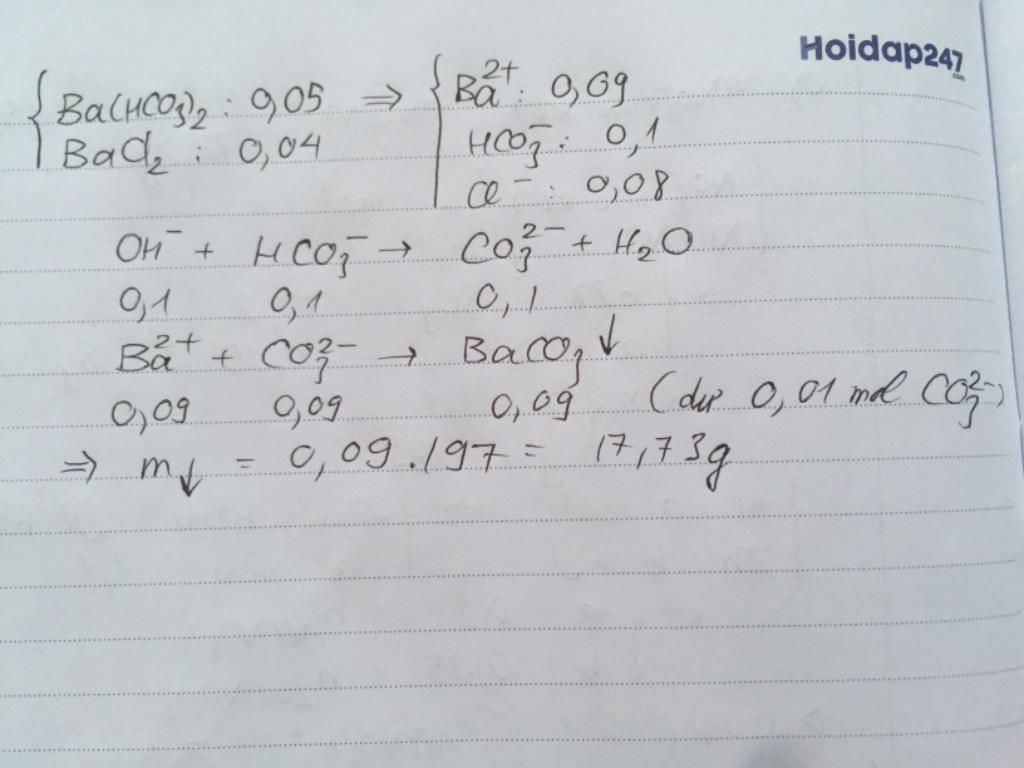 Hoidap247
.com
Ba(HCO3)2 : 0,05 ⇒ Ba2+ : 0,09
BaCl2 : 0,04 HCO3− : 0,1
Cl− : 0,08
OH− + HCO3− → CO3 2− + H2O
0,1 0,1 0,1
Ba2+ + CO3 2− → BaCO3 ↓
0,09 0,09 0,09 (dư 0,01 mol CO3 2−)
⇒ m↓ = 0,09 . 197 = 17,73g